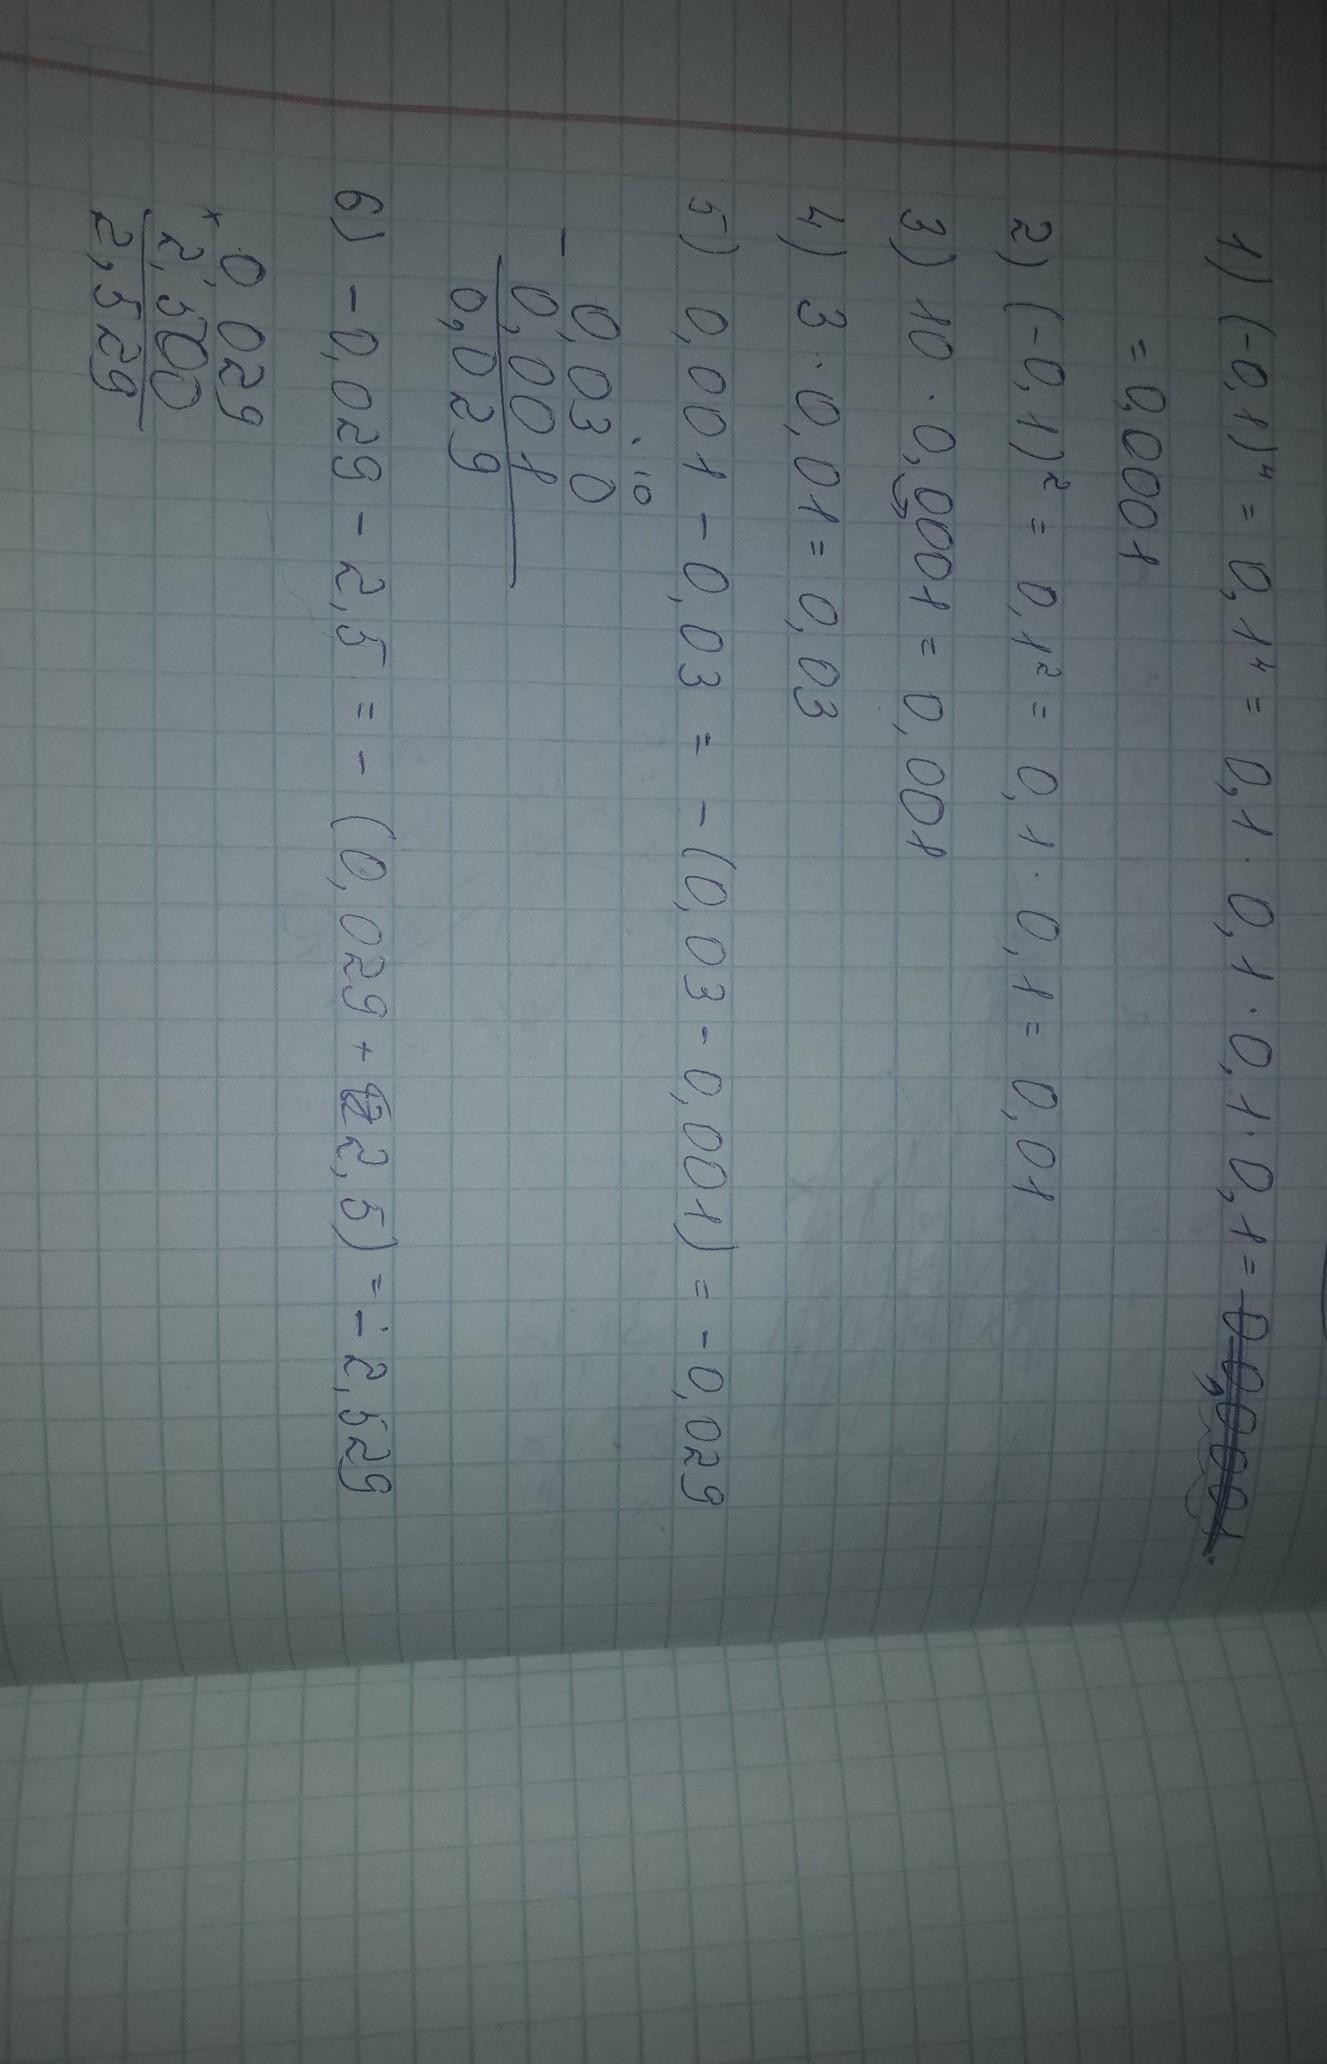 1) (-0,1)⁴ = 0,1⁴ = 0,1 · 0,1 · 0,1 · 0,1 =
= 0,0001
2) (-0,1)² = 0,1² = 0,1 · 0,1 = 0,01
3) 10 · 0,0001 = 0,001
4) 3 · 0,01 = 0,03
5) 0,001 - 0,03 = - (0,03 - 0,001) = - 0,029
· 10
- 0,030
0,001
0,029
6) - 0,029 - 2,5 = - (0,029 + 2,5) = - 2,529
0,029
+ 2,500
2,529